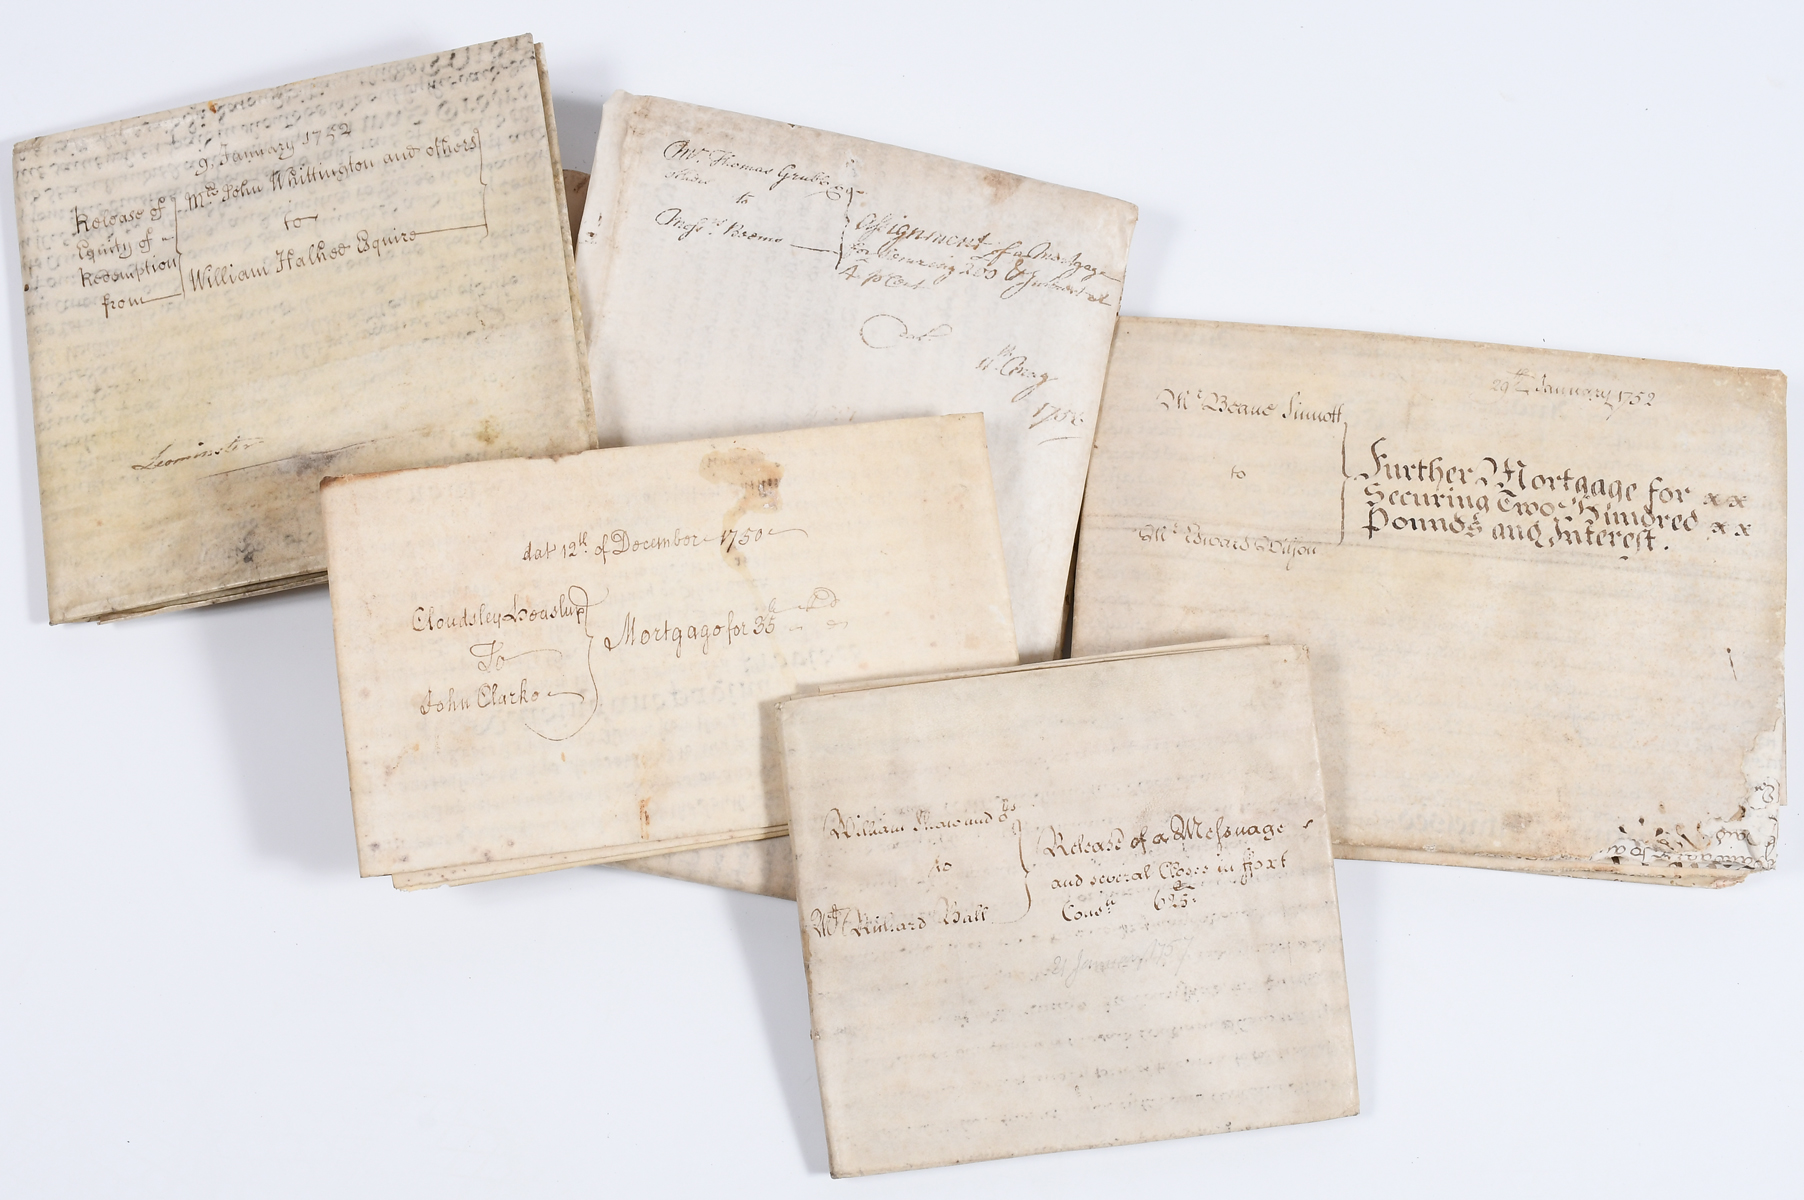 9 January 1752
Release of
Equity of
Redemption
from
Mr. John Whittington and others
to
William Halhed Esquire
Leominster
Mr. Thomas Grubb
to
Messrs.
Assignment of a Mortgage
for securing 200 & Interest at
4 p Cent
Dat
11th May
175
29th January 1752
Mr Beave Sinnott
to
Mr Edward Wilson
Further Mortgage for xx
Securing Two Hundred xx
Pounds and Interest.
dat 12th of December 1750
Cloudsley Heaslup
To
John Clarke
Mortgage for 35
William and
to
Mr Richard Ball
Release of a Messuage
and several Closes in
Cons 625
January 1757